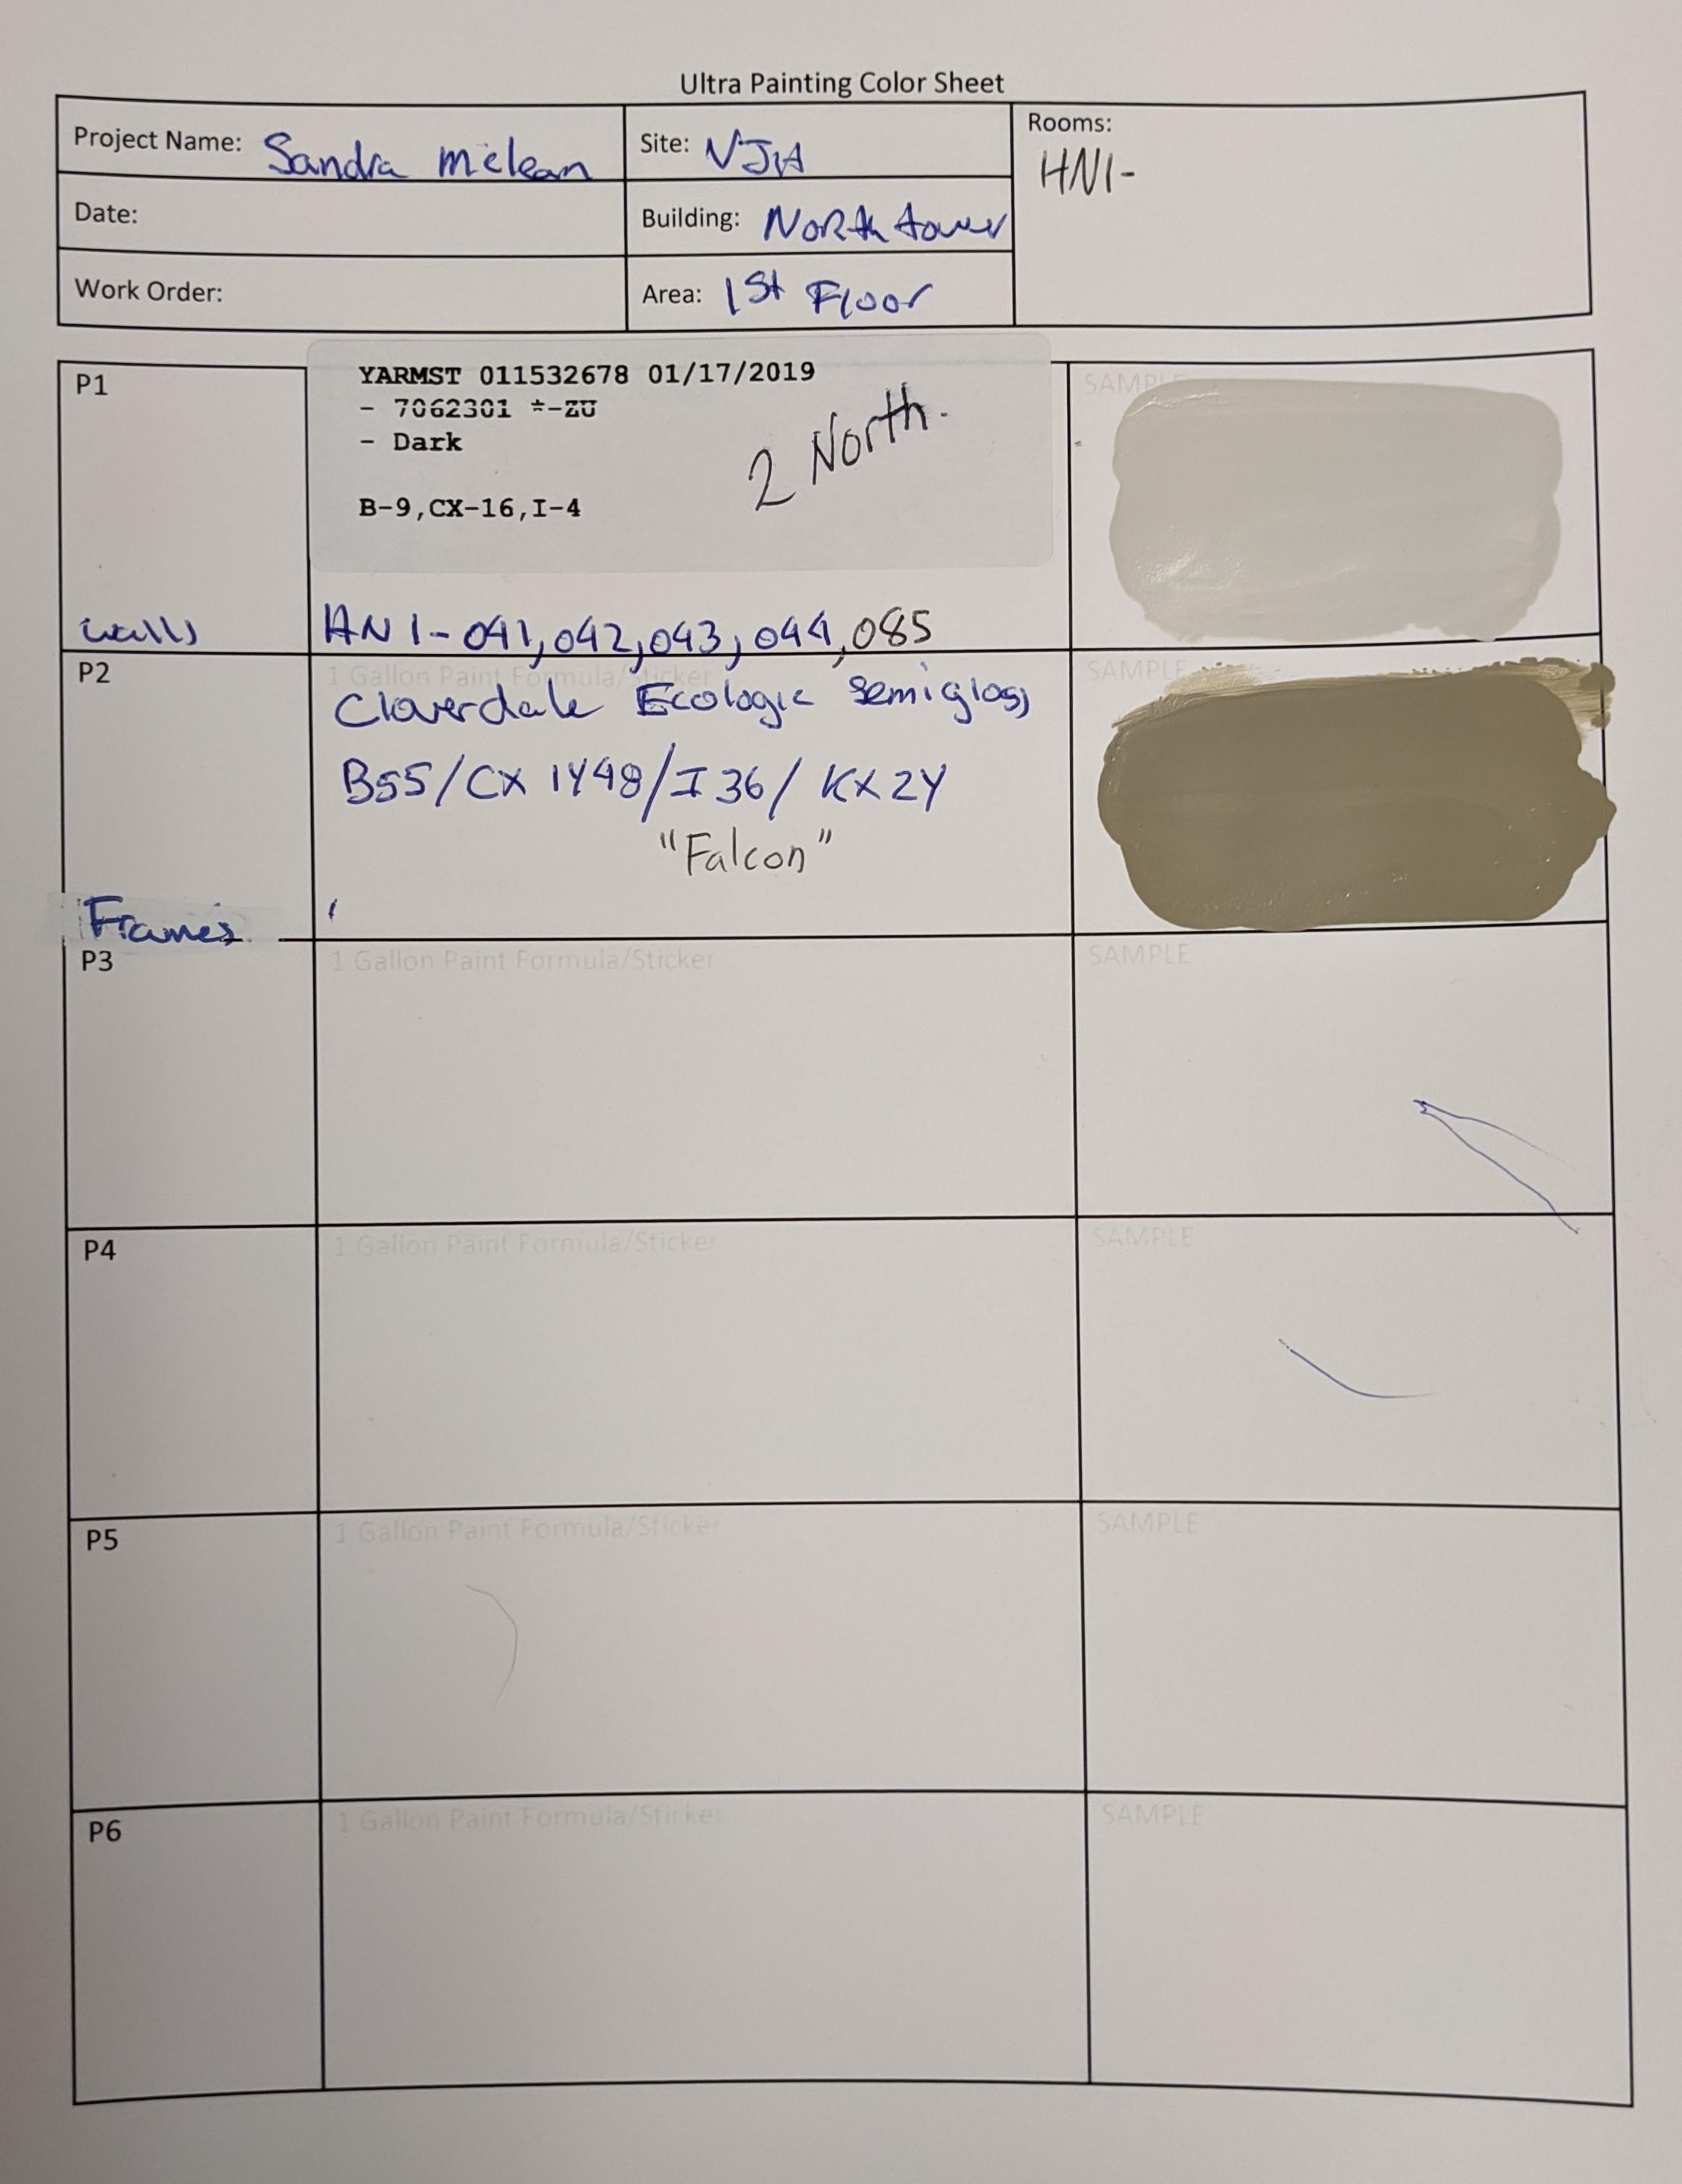 Ultra Painting Color Sheet
Project Name: Sandra Mclean
Site: VJH
Rooms:
HN1-
Date:
Building: North tower
Work Order:
Area: 1st Floor
P1
YARMST 011532678 01/17/2019
- 7062301 *-ZU
- Dark
2 North.
B-9,CX-16,I-4
SAMPLE
walls
HN1-041,042,043,044,085
P2
1 Gallon Paint Formula/Sticker
SAMPLE
Cloverdale Ecologic Semigloss
B55/CX 1Y48/I 36/ KX2Y
"Falcon"
Frames
P3
1 Gallon Paint Formula/Sticker
SAMPLE
P4
1 Gallon Paint Formula/Sticker
SAMPLE
P5
1 Gallon Paint Formula/Sticker
SAMPLE
P6
1 Gallon Paint Formula/Sticker
SAMPLE